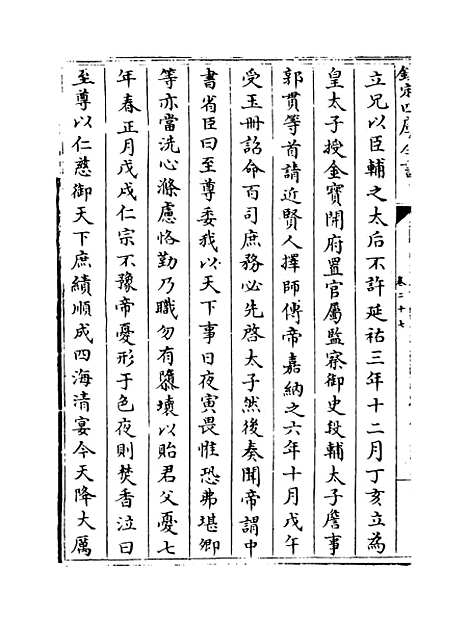 欽定四庫全書
卷二十七
立兄以臣輔之太后不許延祐三年十二月丁亥立為
皇太子授金寶開府置官屬監察御史段輔太子詹事
郭貫等首請近賢人擇師傅帝嘉納之六年十月戊午
受玉冊詔命百司庶務必先啓太子然後奏聞帝謂中
書省臣曰至尊委我以天下事日夜寅畏惟恐弗堪卿
等亦當洗心滌慮恪勤乃職勿有隳壞以貽君父憂七
年春正月戊戌仁宗不豫帝憂形于色夜則焚香泣曰
至尊以仁慈御天下庶績順成四海清宴今天降大厲